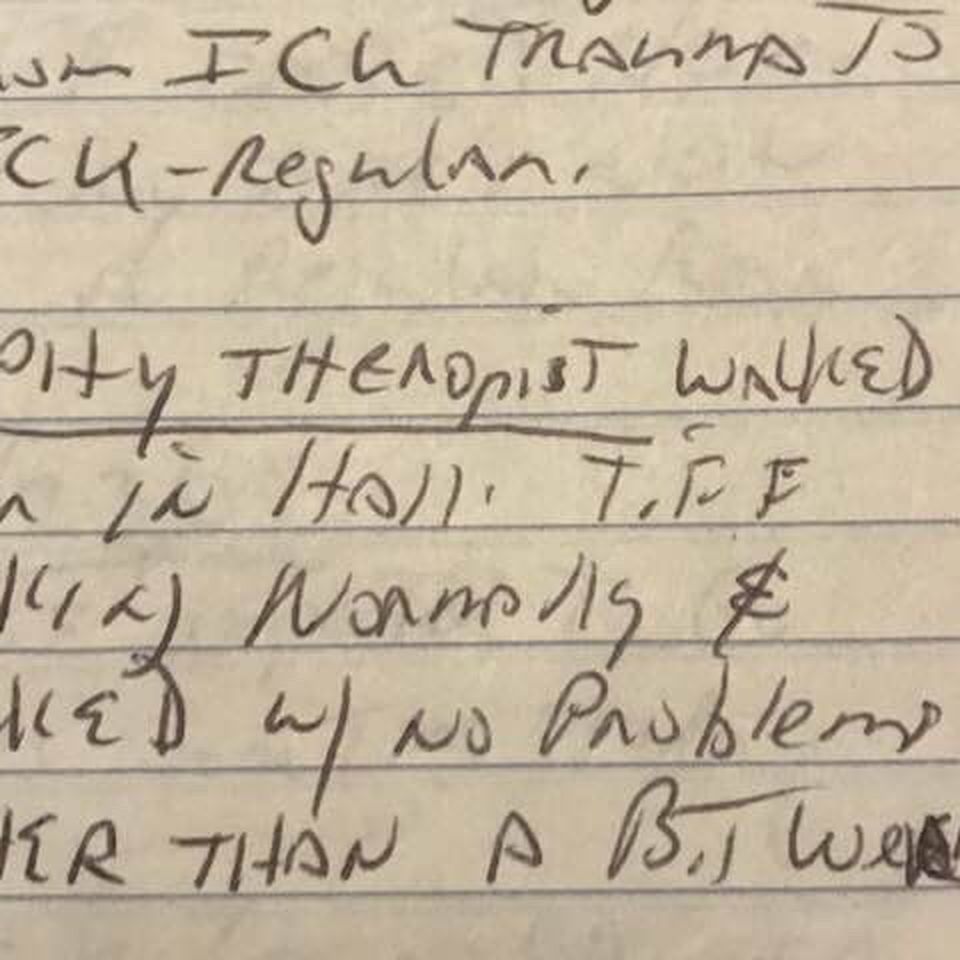 ICU TRAUMA TO
ICU-Regular.
THERApisT WALKED
in HAll. T.F.F
Normally &
KED w/ NO Problems
HER THAN A BiT WeAk